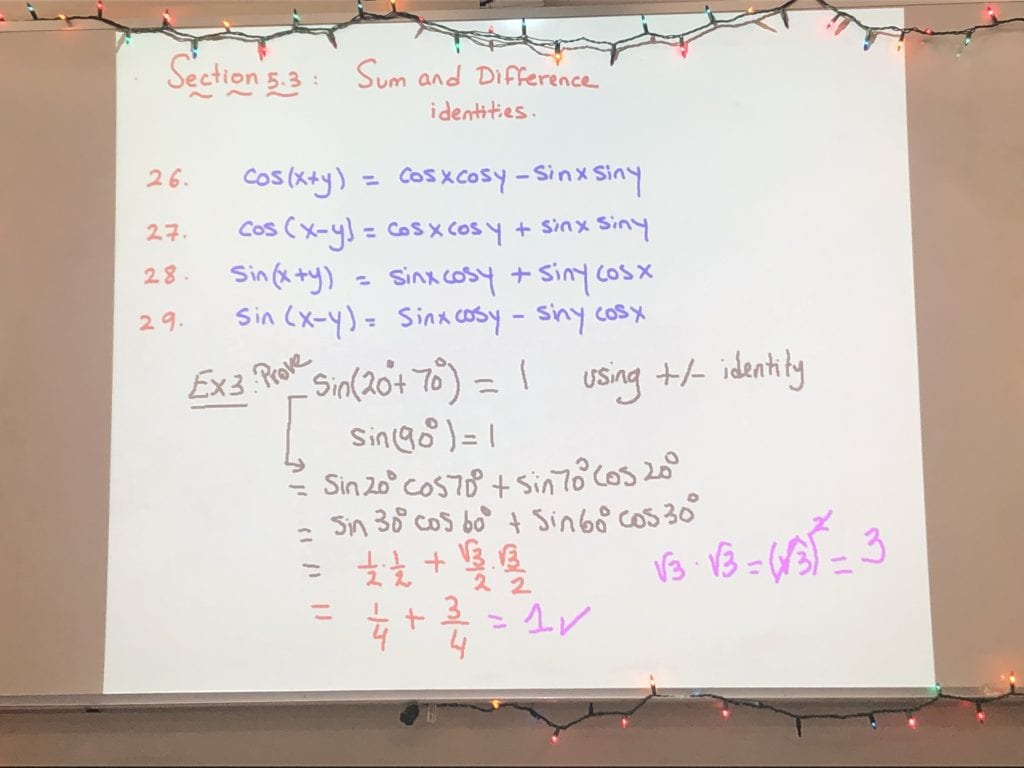 Section 5.3: Sum and Difference
identities.
26. cos(x+y) = cosxcosy - sinx siny
27. cos(x-y) = cosxcosy + sinx siny
28. Sin(x+y) = sinxcosy + siny cosx
29. Sin (x-y) = Sinxcosy - siny cosx
Ex3: Prove Sin(20°+70°) = 1 using +/- identity
sin(90°) = 1
= Sin20° cos70° + sin70° cos20°
= sin 30° cos 60° + Sin60° cos 30°
= 1/2 · 1/2 + √3/2 · √3/2 √3 · √3 = (√3)² = 3
= 1/4 + 3/4 = 1 ✓